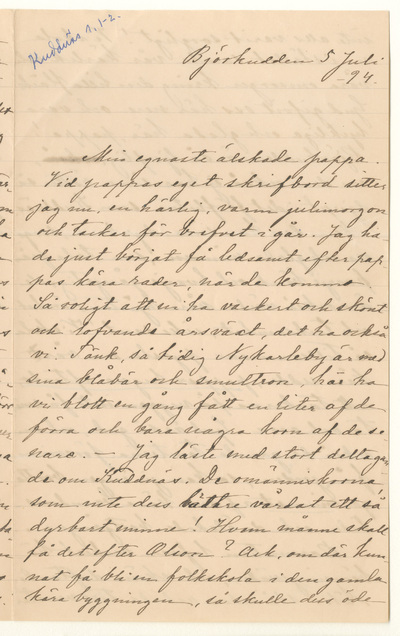 Kuddnäs 1, 1-2.
Björkudden 5 Juli
-94.
Min egnaste älskade pappa.
Vid pappas eget skrifbord sitter
jag nu, en härlig, varm julimorgon
och tackar för brefvet i går. Jag ha-
de just börjat få ledsamt efter pap
pas kära rader, när de kommo
Så roligt att ni ha vackert och skönt
och lofvande årsväxt, det ha också
vi. Tänk, så tidig Nykarleby är med
sina blåbär och smultron, här ha
vi blott en gång fått en liter af de
förra och bara några korn af de se
nare. — Jag läste med stort deltagan
de om Kuddnäs. De omänniskorna
som inte dess bättre vårdat ett så
dyrbart minne! Hvem månne skall
få det efter Olson? Ack, om där kun
nat få bli en folkskola i den gamla
kära byggningen, så skulle dess öde